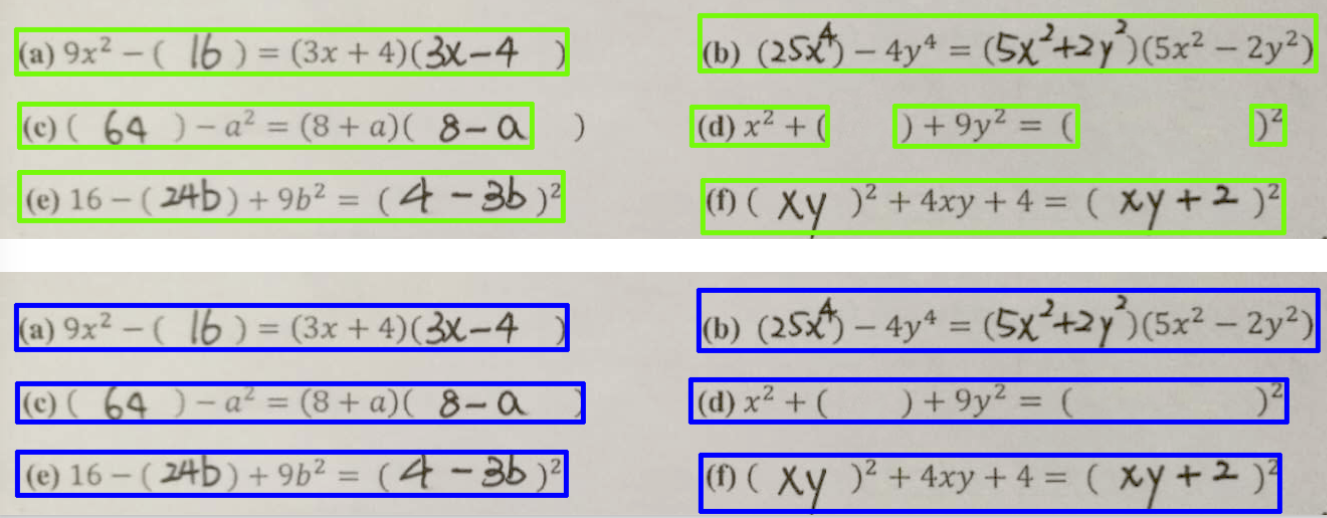 (a) 9x² − ( 16 ) = (3x + 4)(3x−4 )
(b) (25x⁴) − 4y⁴ = (5x²+2y²)(5x² − 2y²)
(c) ( 64 ) − a² = (8 + a)( 8−a )
(d) x² + ( ) + 9y² = ( )²
(e) 16 − (24b) + 9b² = (4 − 3b )²
(f) ( xy )² + 4xy + 4 = ( xy + 2 )²
(a) 9x² − ( 16 ) = (3x + 4)(3x−4 )
(b) (25x⁴) − 4y⁴ = (5x²+2y²)(5x² − 2y²)
(c) ( 64 ) − a² = (8 + a)( 8−a )
(d) x² + ( ) + 9y² = ( )²
(e) 16 − (24b) + 9b² = (4 − 3b )²
(f) ( xy )² + 4xy + 4 = ( xy + 2 )²